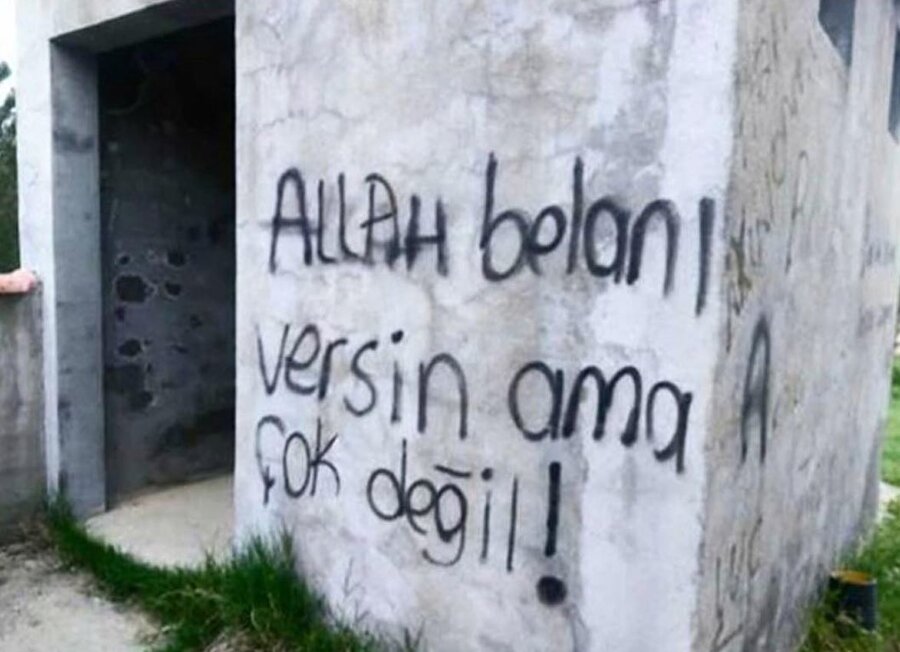 ALLAH belanı
versin ama
çok değil!
A